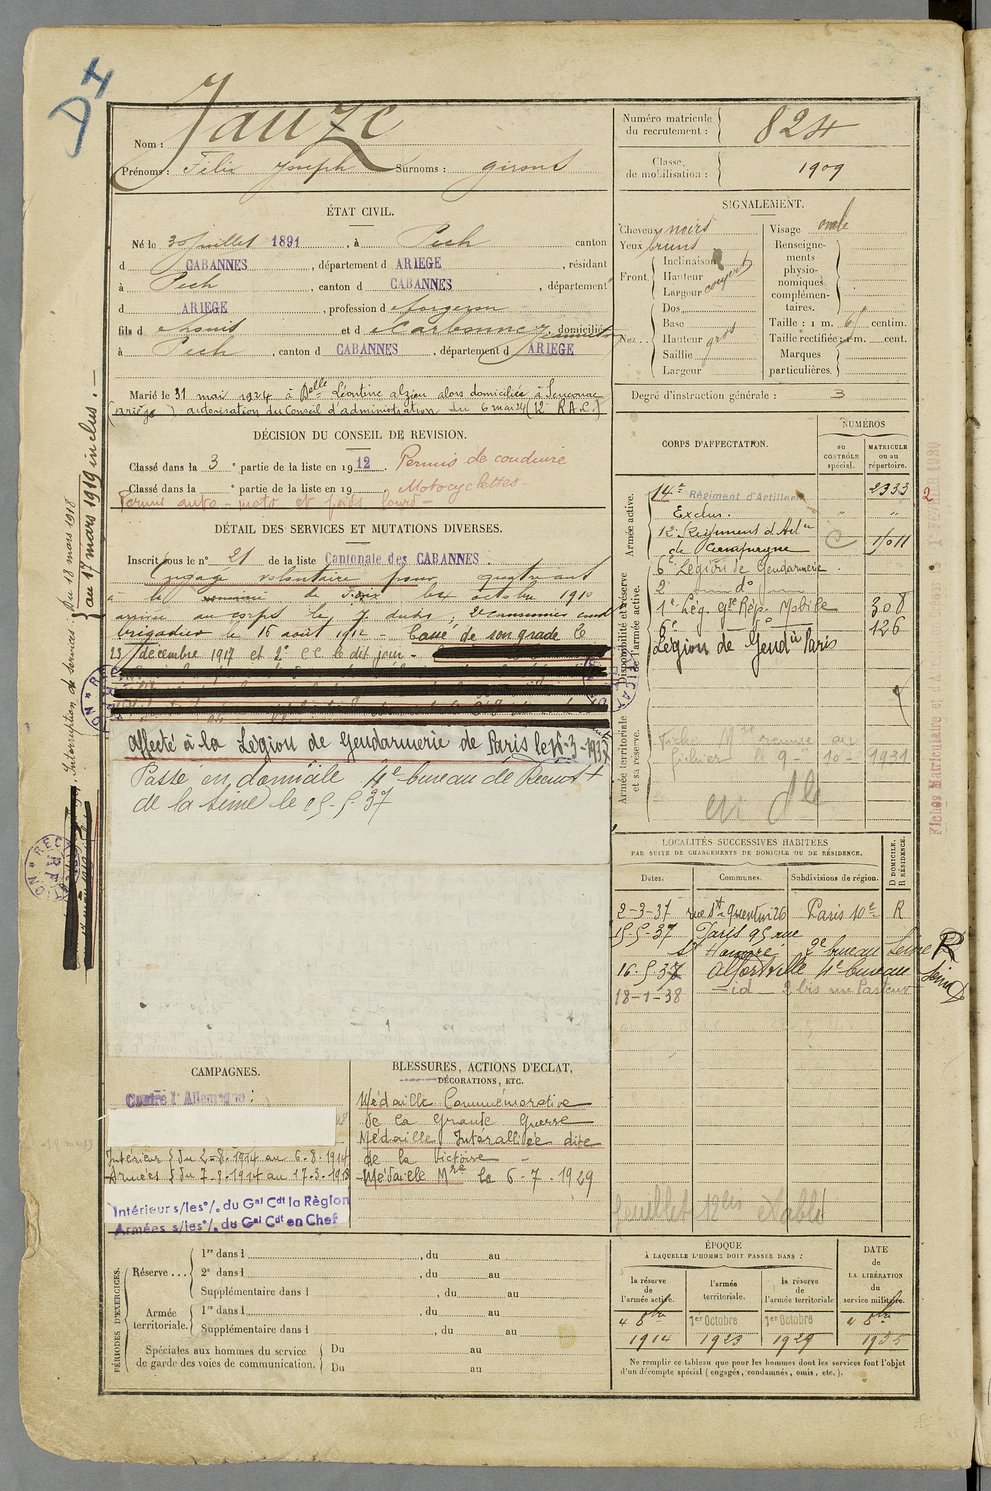 D4
Nom : Jauze
Prénoms : Félix Joseph Surnoms : girons
ÉTAT CIVIL.
Né le 30 juillet 1891, à Pech canton
d CABANNES, département d ARIEGE, résidant
à Pech, canton d CABANNES, département
d ARIEGE, profession d forgeron
fils d Louis et d domicilié
à Pech, canton d CABANNES, département d ARIEGE
Marié le 31 mai 1924 à Delle Léontine alzieu alors domiciliée à
(ariège) autorisation du Conseil d'administration du 6 mai 24 (12e R.A.C.)
DÉCISION DU CONSEIL DE REVISION.
Classé dans la 3e partie de la liste en 1912. Permis de conduire
Classé dans la e partie de la liste en 19 Motocyclettes.
Permis auto - moto et poids lourd -
DÉTAIL DES SERVICES ET MUTATIONS DIVERSES.
Inscrit sous le n° 21 de la liste Cantonale des CABANNES.
Engagé volontaire pour quatre ans
à la de Foix le 4 octobre 1910
arrivé au corps le 7 dudit, 2e canonnier cond
brigadier le 16 août 1912 - Cassé de son grade le
23 décembre 1917 et 2e C.C. le dit jour -
Affecté à la Légion de Gendarmerie de Paris le 15-3-1937
Passé en domicile 4e bureau de Recrut
de la Seine le 25-5-37
Interruption de services du 18 mars 1918
au 17 mars 1919 inclus. -
CAMPAGNES.
Contre l'Allemagne :
Intérieur du 2-8-1914 au 6-8-1914
Armées du 7-8-1914 au 17-3-1918
Intérieur s/les o/. du Gal Cdt la Région
Armées s/les o/. du Gal Cdt en Chef
BLESSURES, ACTIONS D'ÉCLAT,
DÉCORATIONS, ETC.
Médaille Commémorative
de la Grande Guerre
Médaille Interalliée dite
de la Victoire -
Médaille Mre le 6-7-1929
PÉRIODES D'EXERCICES.
Réserve ... 1re dans l , du au
2e dans l , du au
Supplémentaire dans l , du au
Armée territoriale. 1re dans l , du au
Supplémentaire dans l , du au
Spéciales aux hommes du service Du au
de garde des voies de communication. Du au
Numéro matricule du recrutement : 824
Classe de mobilisation : 1909
SIGNALEMENT.
Cheveux noirs
Yeux bruns
Front. Inclinaison
Hauteur
Largeur
Nez... Dos
Base
Hauteur gros
Saillie
Largeur
Visage ovale
Renseignements physionomiques complémentaires.
Taille : 1 m. 65 centim.
Taille rectifiée : 1 m. cent.
Marques particulières.
Degré d'instruction générale : 3
CORPS D'AFFECTATION.
NUMÉROS
au CONTRÔLE spécial.
MATRICULE ou au répertoire.
Armée active.
Disponibilité et réserve de l'armée active.
Armée territoriale et sa réserve.
14e Régiment d'Artillerie 2333
Exclus. " "
12e Régiment d'Artie
de Campagne 15011
6e Légion de Gendarmerie.
2e do
1e Lég. gde Rép. Mobile 308
6e do 126
Légion de Gendie Paris
Fiche Mre remise au
fichier le 9-10-1931
en dle
2
Fiches Matriculaire et
LOCALITÉS SUCCESSIVES HABITÉES
PAR SUITE DE CHANGEMENTS DE DOMICILE OU DE RÉSIDENCE.
Dates. Communes. Subdivisions de région. D DOMICILE. R RÉSIDENCE.
2-3-37 rue St Quentin 26 Paris 10e R
15-5-37 Paris 95 rue
St Honoré 2e bureau Seine R
16-5-37 Alfortville 4e bureau Seine D
18-1-38 - id - 2 bis rue Pasteur
feuillet 12bis établi
ÉPOQUE
À LAQUELLE L'HOMME DOIT PASSER DANS :
la réserve de l'armée active.
l'armée territoriale.
la réserve de l'armée territoriale
DATE de LA LIBÉRATION du service militaire.
4 8bre 1914
1er Octobre 1923
1er Octobre 1929
4 8bre 1935
Ne remplir ce tableau que pour les hommes dont les services font l'objet
d'un décompte spécial (engagés, condamnés, omis, etc.).